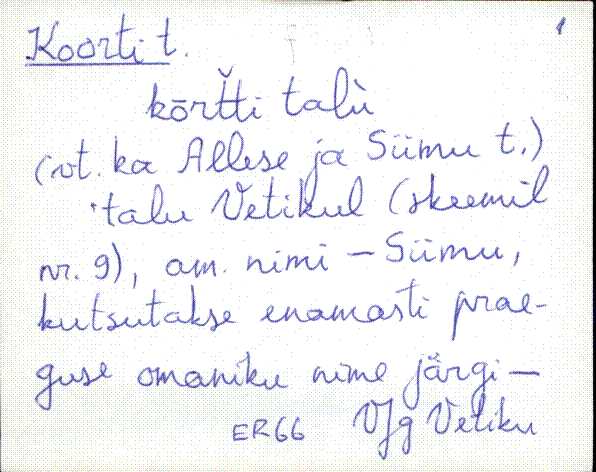 1
Koorti t.
kōrt̆ti talù
(vt. ka Allese ja Siimu t.)
talu Vetikul (skeemil
nr. 9), am. nimi – Siimu,
kutsutakse enamasti prae-
guse omaniku nime järgi –
ER66 VJg Vetiku